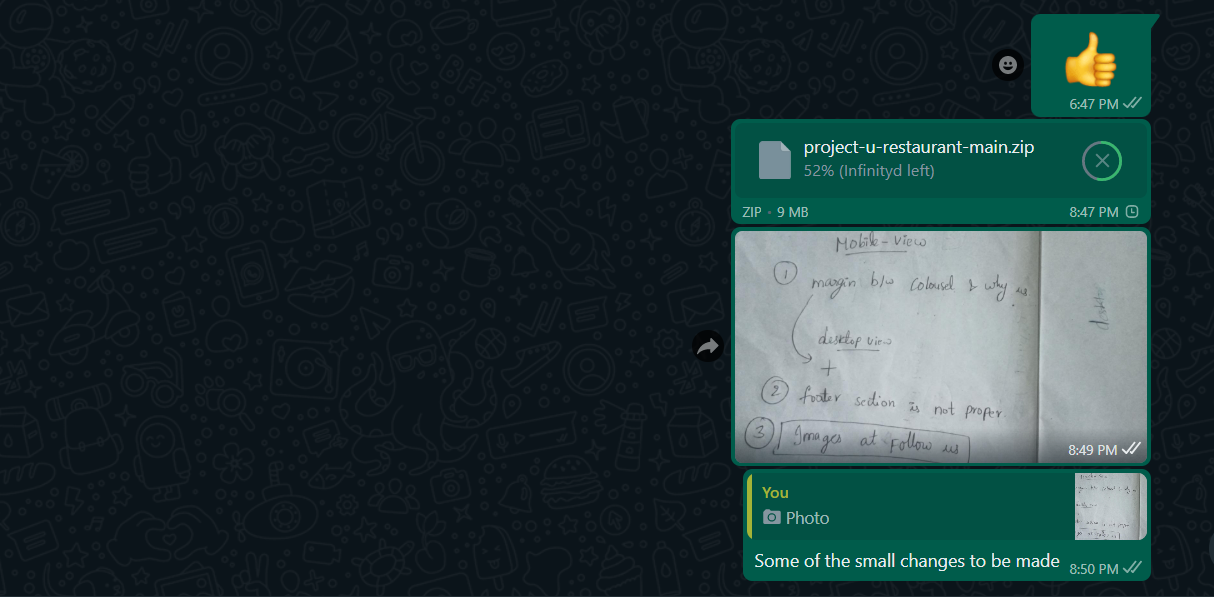 6:47 PM
project-u-restaurant-main.zip
52% (Infinityd left)
ZIP • 9 MB
8:47 PM
Mobile-View
1
margin b/w Colousel & why us
desktop view
+
2 footer section is not proper.
3 Images at Follow us
8:49 PM
You
Photo
Some of the small changes to be made
8:50 PM